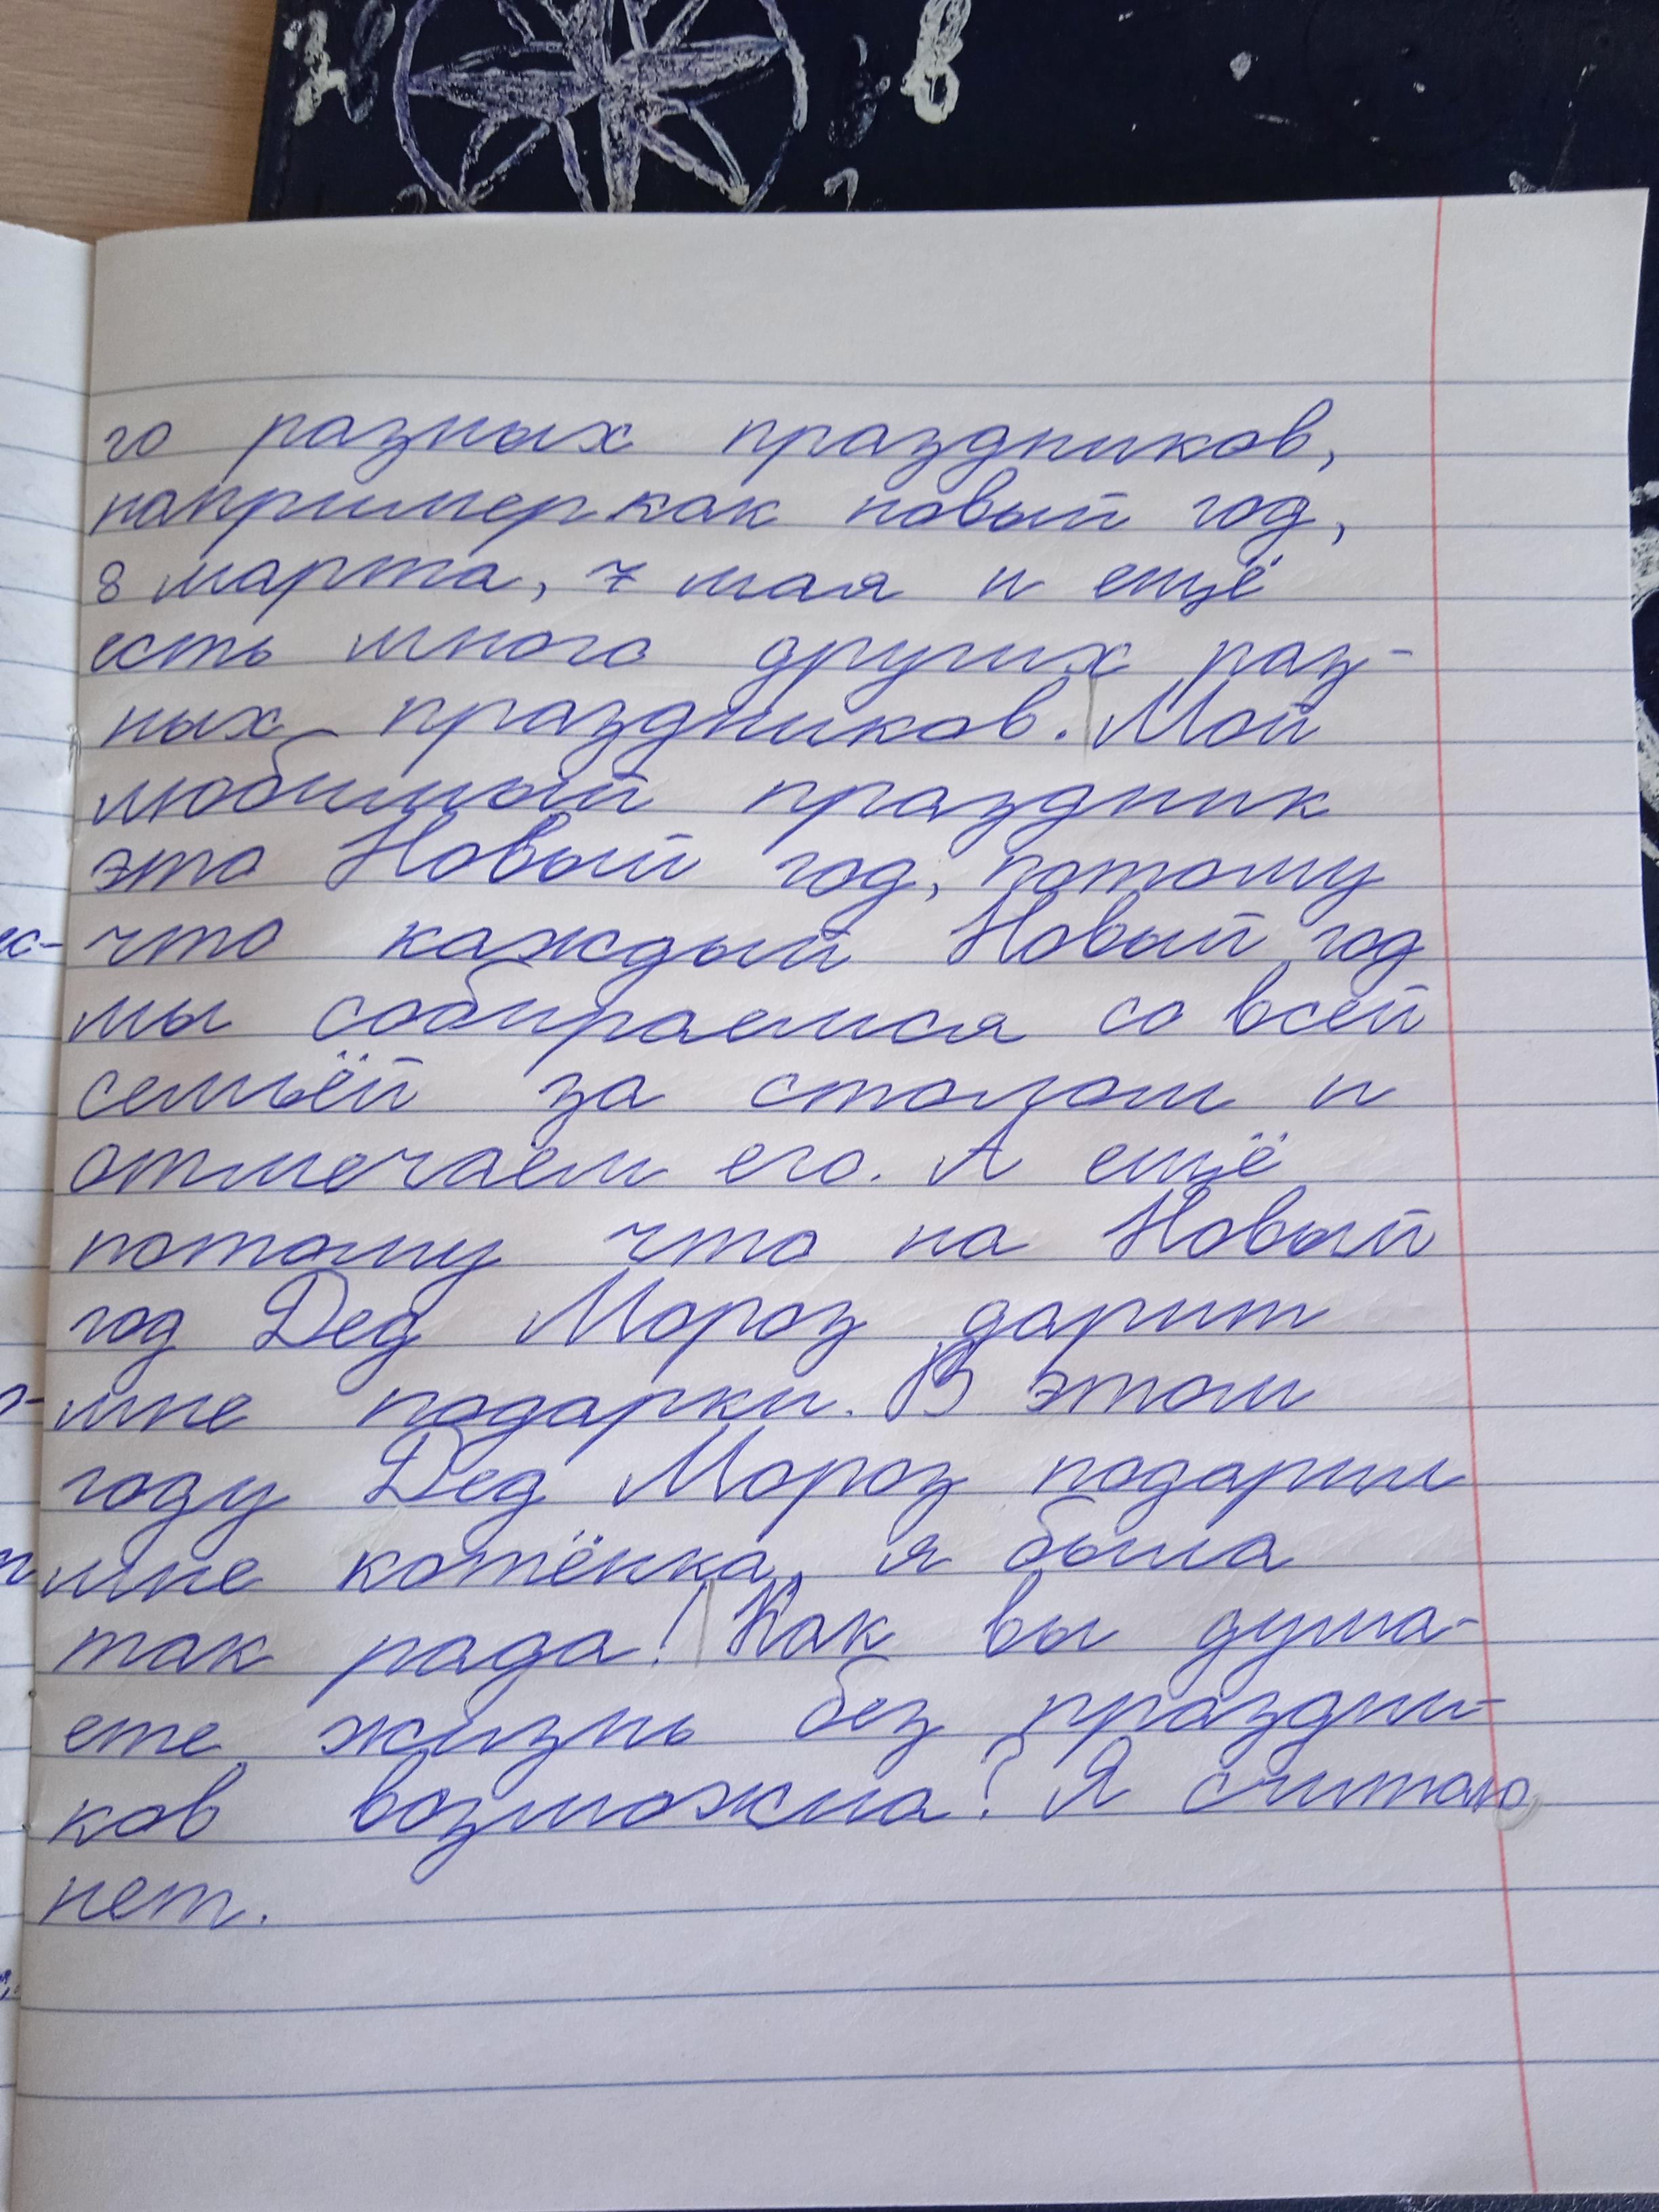 го разных праздников,
например как новый год,
8 марта, 7 мая и ещё
есть много других раз-
ных праздников. Мой
любимый праздник
это Новый год, потому
что каждый Новый год
мы собираемся со всей
семьёй за столом и
отмечаем его. А ещё
потому что на Новый
год Дед Мороз дарит
мне подарки. В этом
году Дед Мороз подарил
мне котёнка, я была
так рада! Как вы дума-
ете, жизнь без праздни-
ков возможна? Я считаю,
нет.